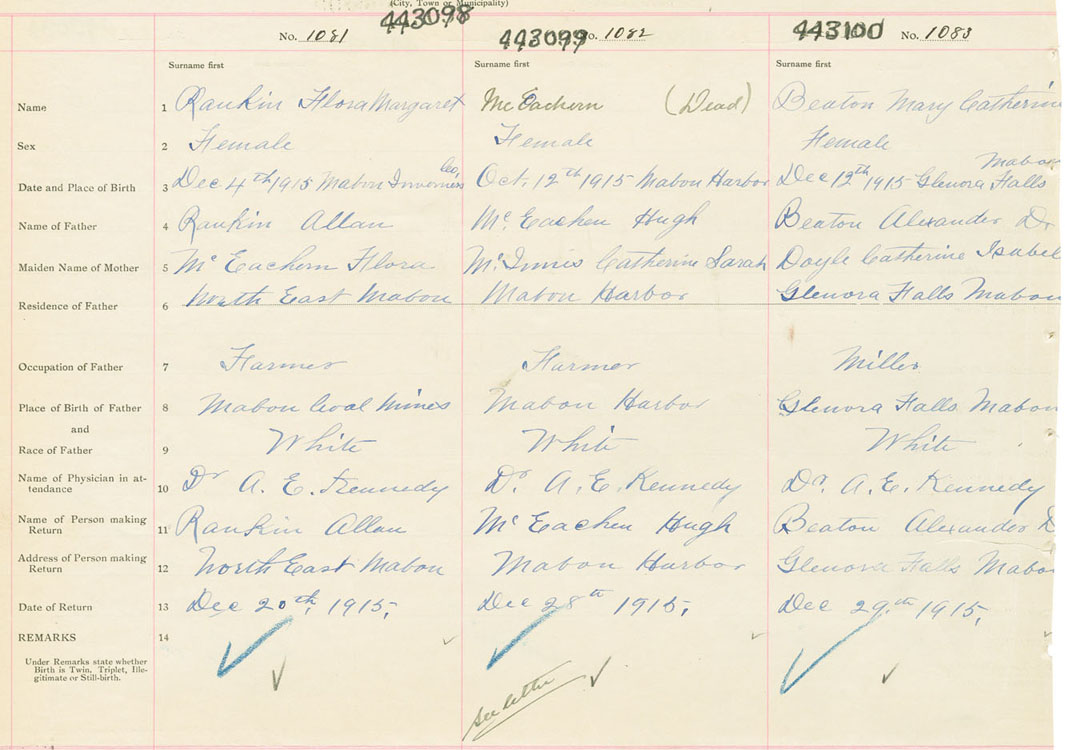 (City, Town or Municipality)
443098 443099 443100
No. 1081 No. 1082 No. 1083
Surname first Surname first Surname first
Name 1 Rankin Flora Margaret Mc Eachern (Dead) Beaton Mary Catherine
Sex 2 Female Female Female
Date and Place of Birth 3 Dec 4th 1915 Mabou Inverness Co, Oct. 12th 1915 Mabou Harbor Dec 12th 1915 Glenora Falls Mabou
Name of Father 4 Rankin Allan Mc Eachen Hugh Beaton Alexander D
Maiden Name of Mother 5 Mc Eachern Flora Mc Innis Catherine Sarah Doyle Catherine Isabel
Residence of Father 6 North East Mabou Mabou Harbor Glenora Falls Mabou
Occupation of Father 7 Farmer Farmer Miller
Place of Birth of Father 8 Mabou Coal Mines Mabou Harbor Glenora Falls Mabou
and
Race of Father 9 White White White
Name of Physician in at-
tendance 10 Dr A. E. Kennedy Dr. A. E. Kennedy Dr. A. E. Kennedy
Name of Person making
Return 11 Rankin Allan Mc Eachen Hugh Beaton Alexander D
Address of Person making
Return 12 North East Mabou Mabou Harbor Glenora Falls Mabou
Date of Return 13 Dec 20th, 1915, Dec 28th 1915, Dec 29th 1915,
REMARKS 14
Under Remarks state whether
Birth is Twin, Triplet, Ille-
gitimate or Still-birth.
see letter